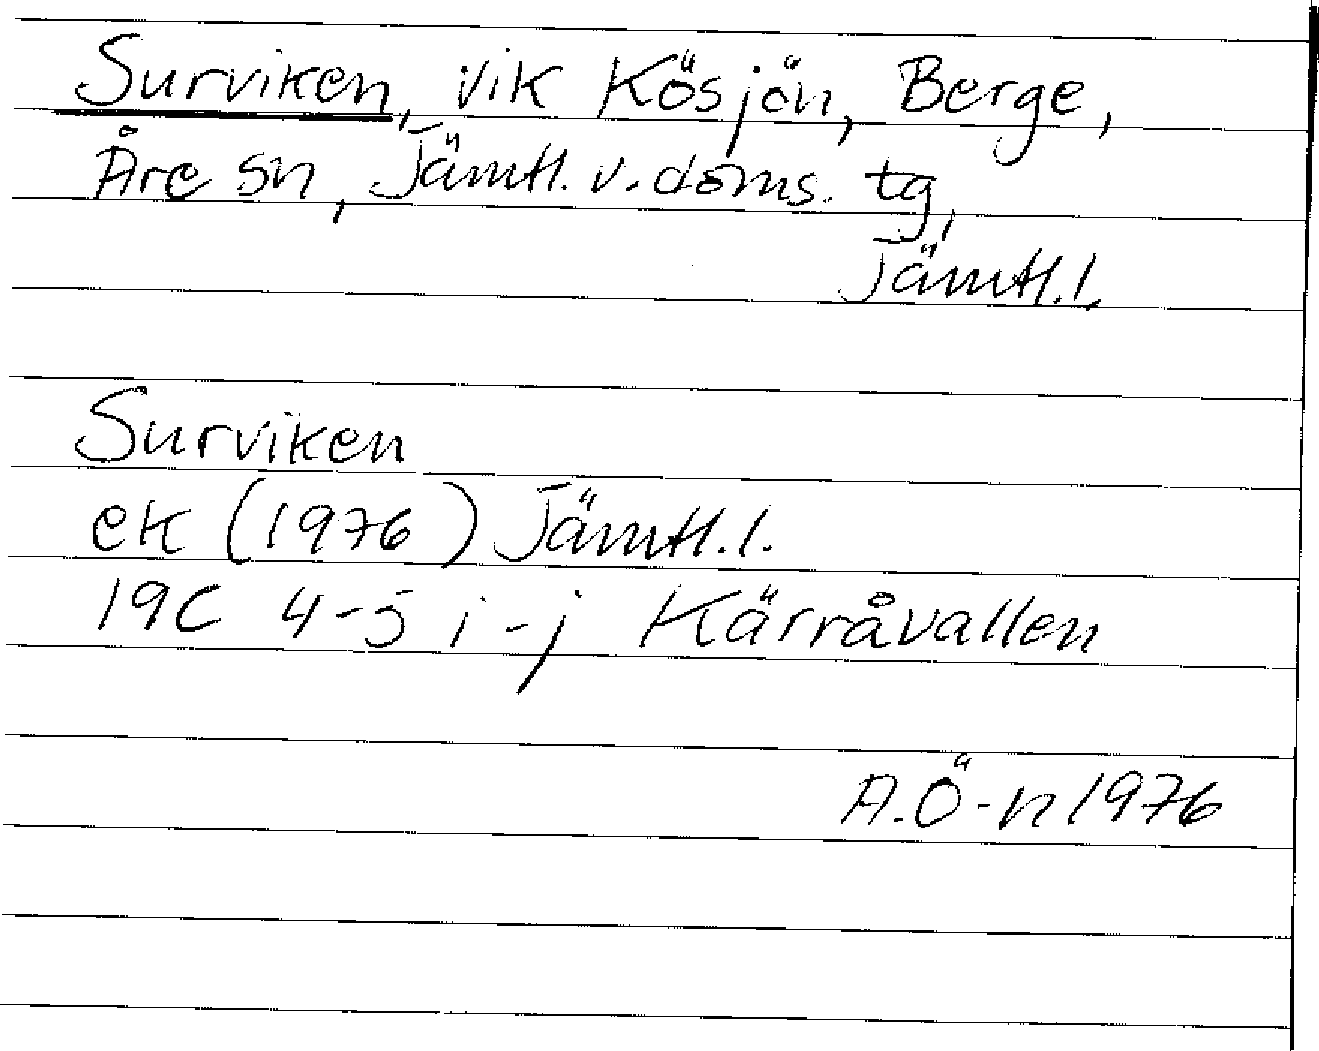 Surviken, vik Kösjön, Berge,
Åre sn, Jämtl. v. doms. tg,
Jämtl. l.
Surviken
ek (1976) Jämtl. l.
19C 4-5 i-j Kärråvallen
A.Ö-n 1976